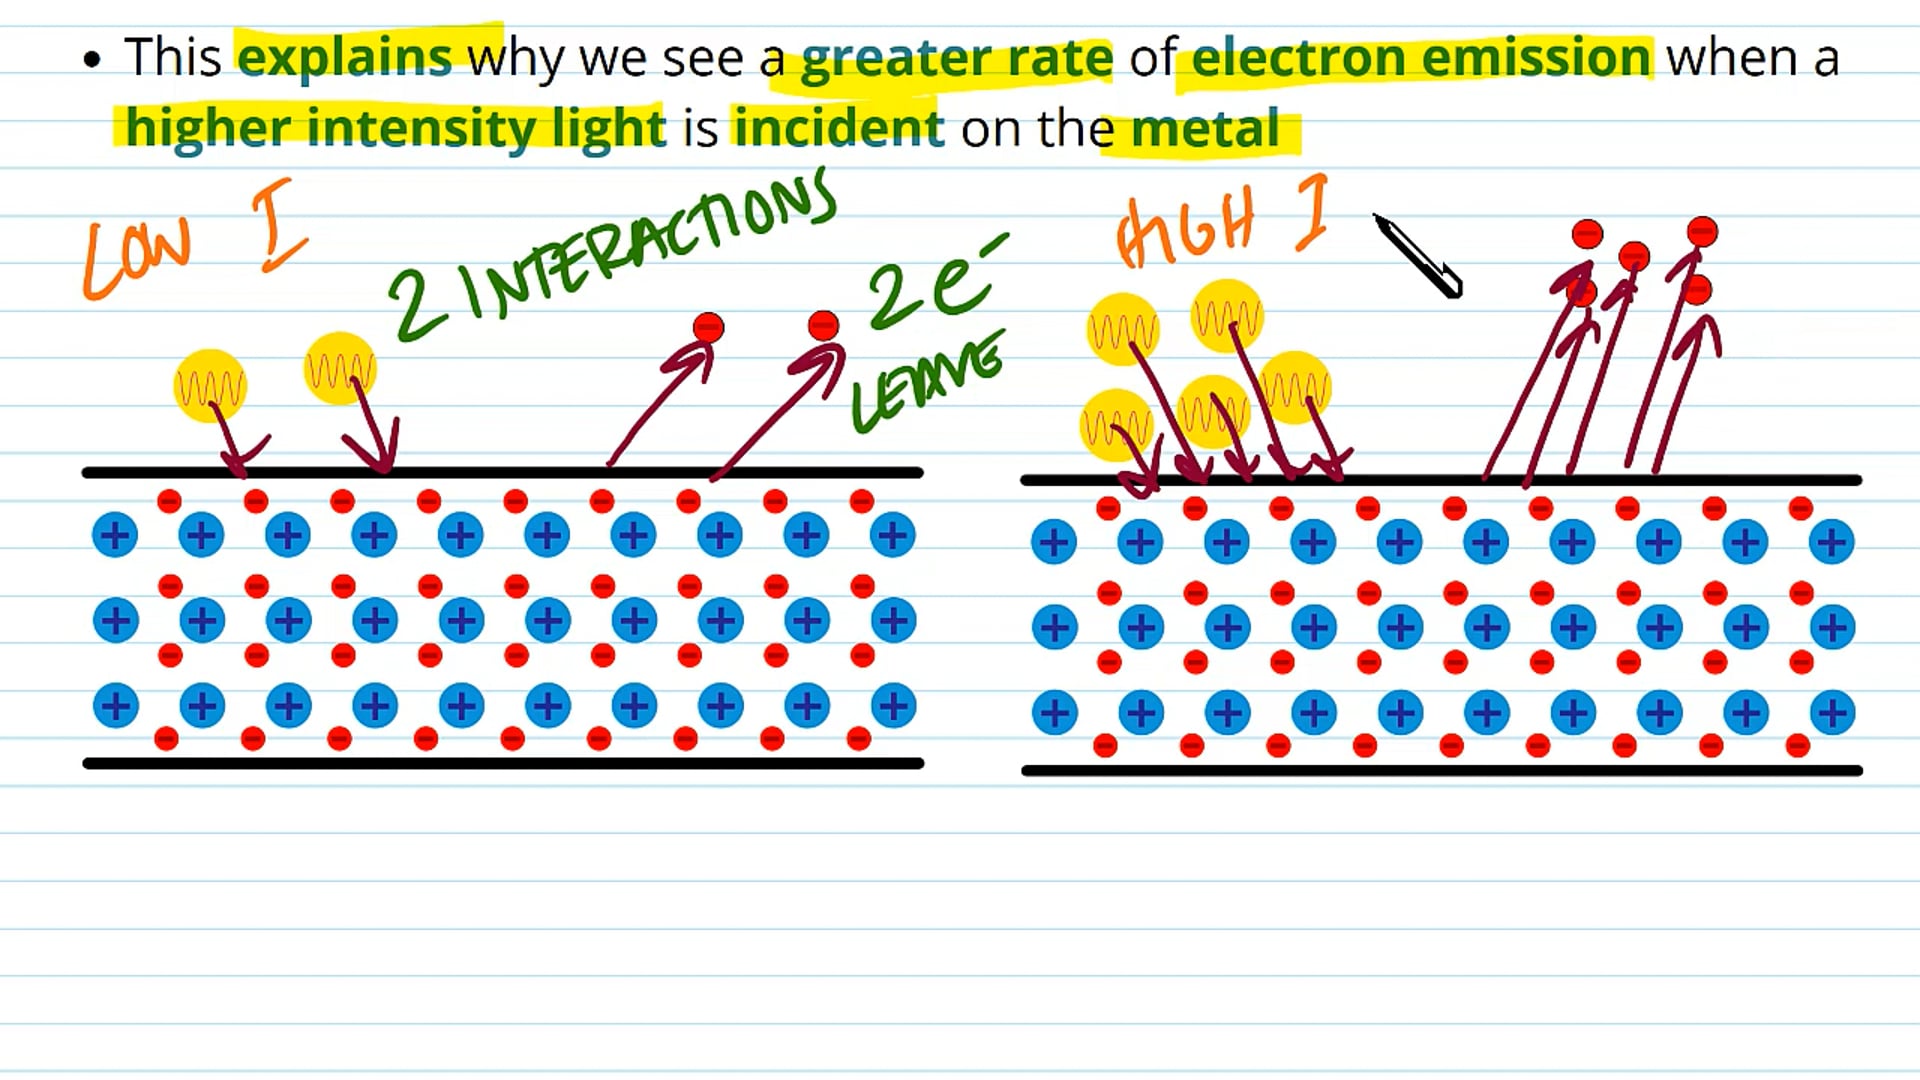 • This explains why we see a greater rate of electron emission when a
higher intensity light is incident on the metal
LOW I
2 INTERACTIONS
2e⁻
LEAVE
HIGH I